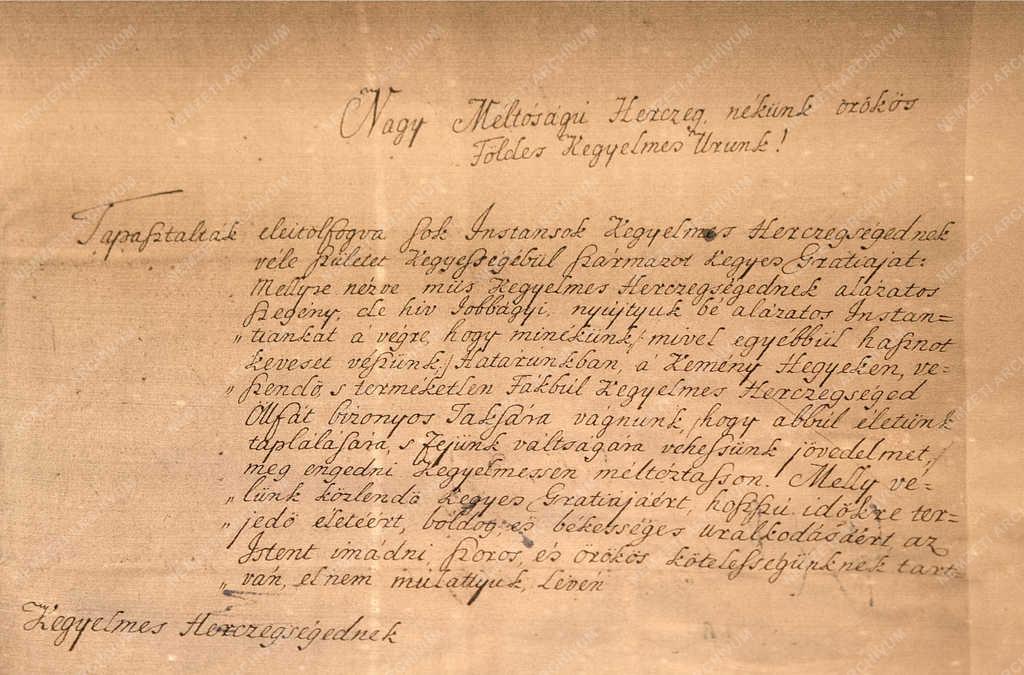 Nagy Méltóságú Herczeg, nékünk örökös
Földes Kegyelmes Urunk!
Tapasztalták eleitőlfogva sok Instansok Kegyelmes Herczegségednek
véle született Kegyességébül származot Kegyes Gratiáját:
Mellyre nézve miis Kegyelmes Herczegségednek alázatos
szegény, de hív Jobbágyi, nyújtyuk bé alázatos Instan=
„tiánkat á végre, hogy minékünk /: mivel egyébbül hasznot
keveset vészünk :/ Határunkban, á Kemény Hegyeken, ve=
„szendö, s terméketlen Fákbúl Kegyelmes Herczegséged
Ölfát bizonyos Taksára vágnunk, /: hogy abbúl életünk
táplálására, s Fejünk váltságára vehessünk jövedelmet, :/
még engedni Kegyelmessen méltóztasson. Melly ve=
„lünk közlendö Kegyes Gratiájáért, hosszú idökre ter=
„jedö életéért, bóldog, és békességes uralkodásáért az
Istent imádni szoros, és örökös kötelességünknek tart=
„ván, el nem múlattyuk, lévén
Kegyelmes Herczegségednek
NEMZETI ARCHÍVUM